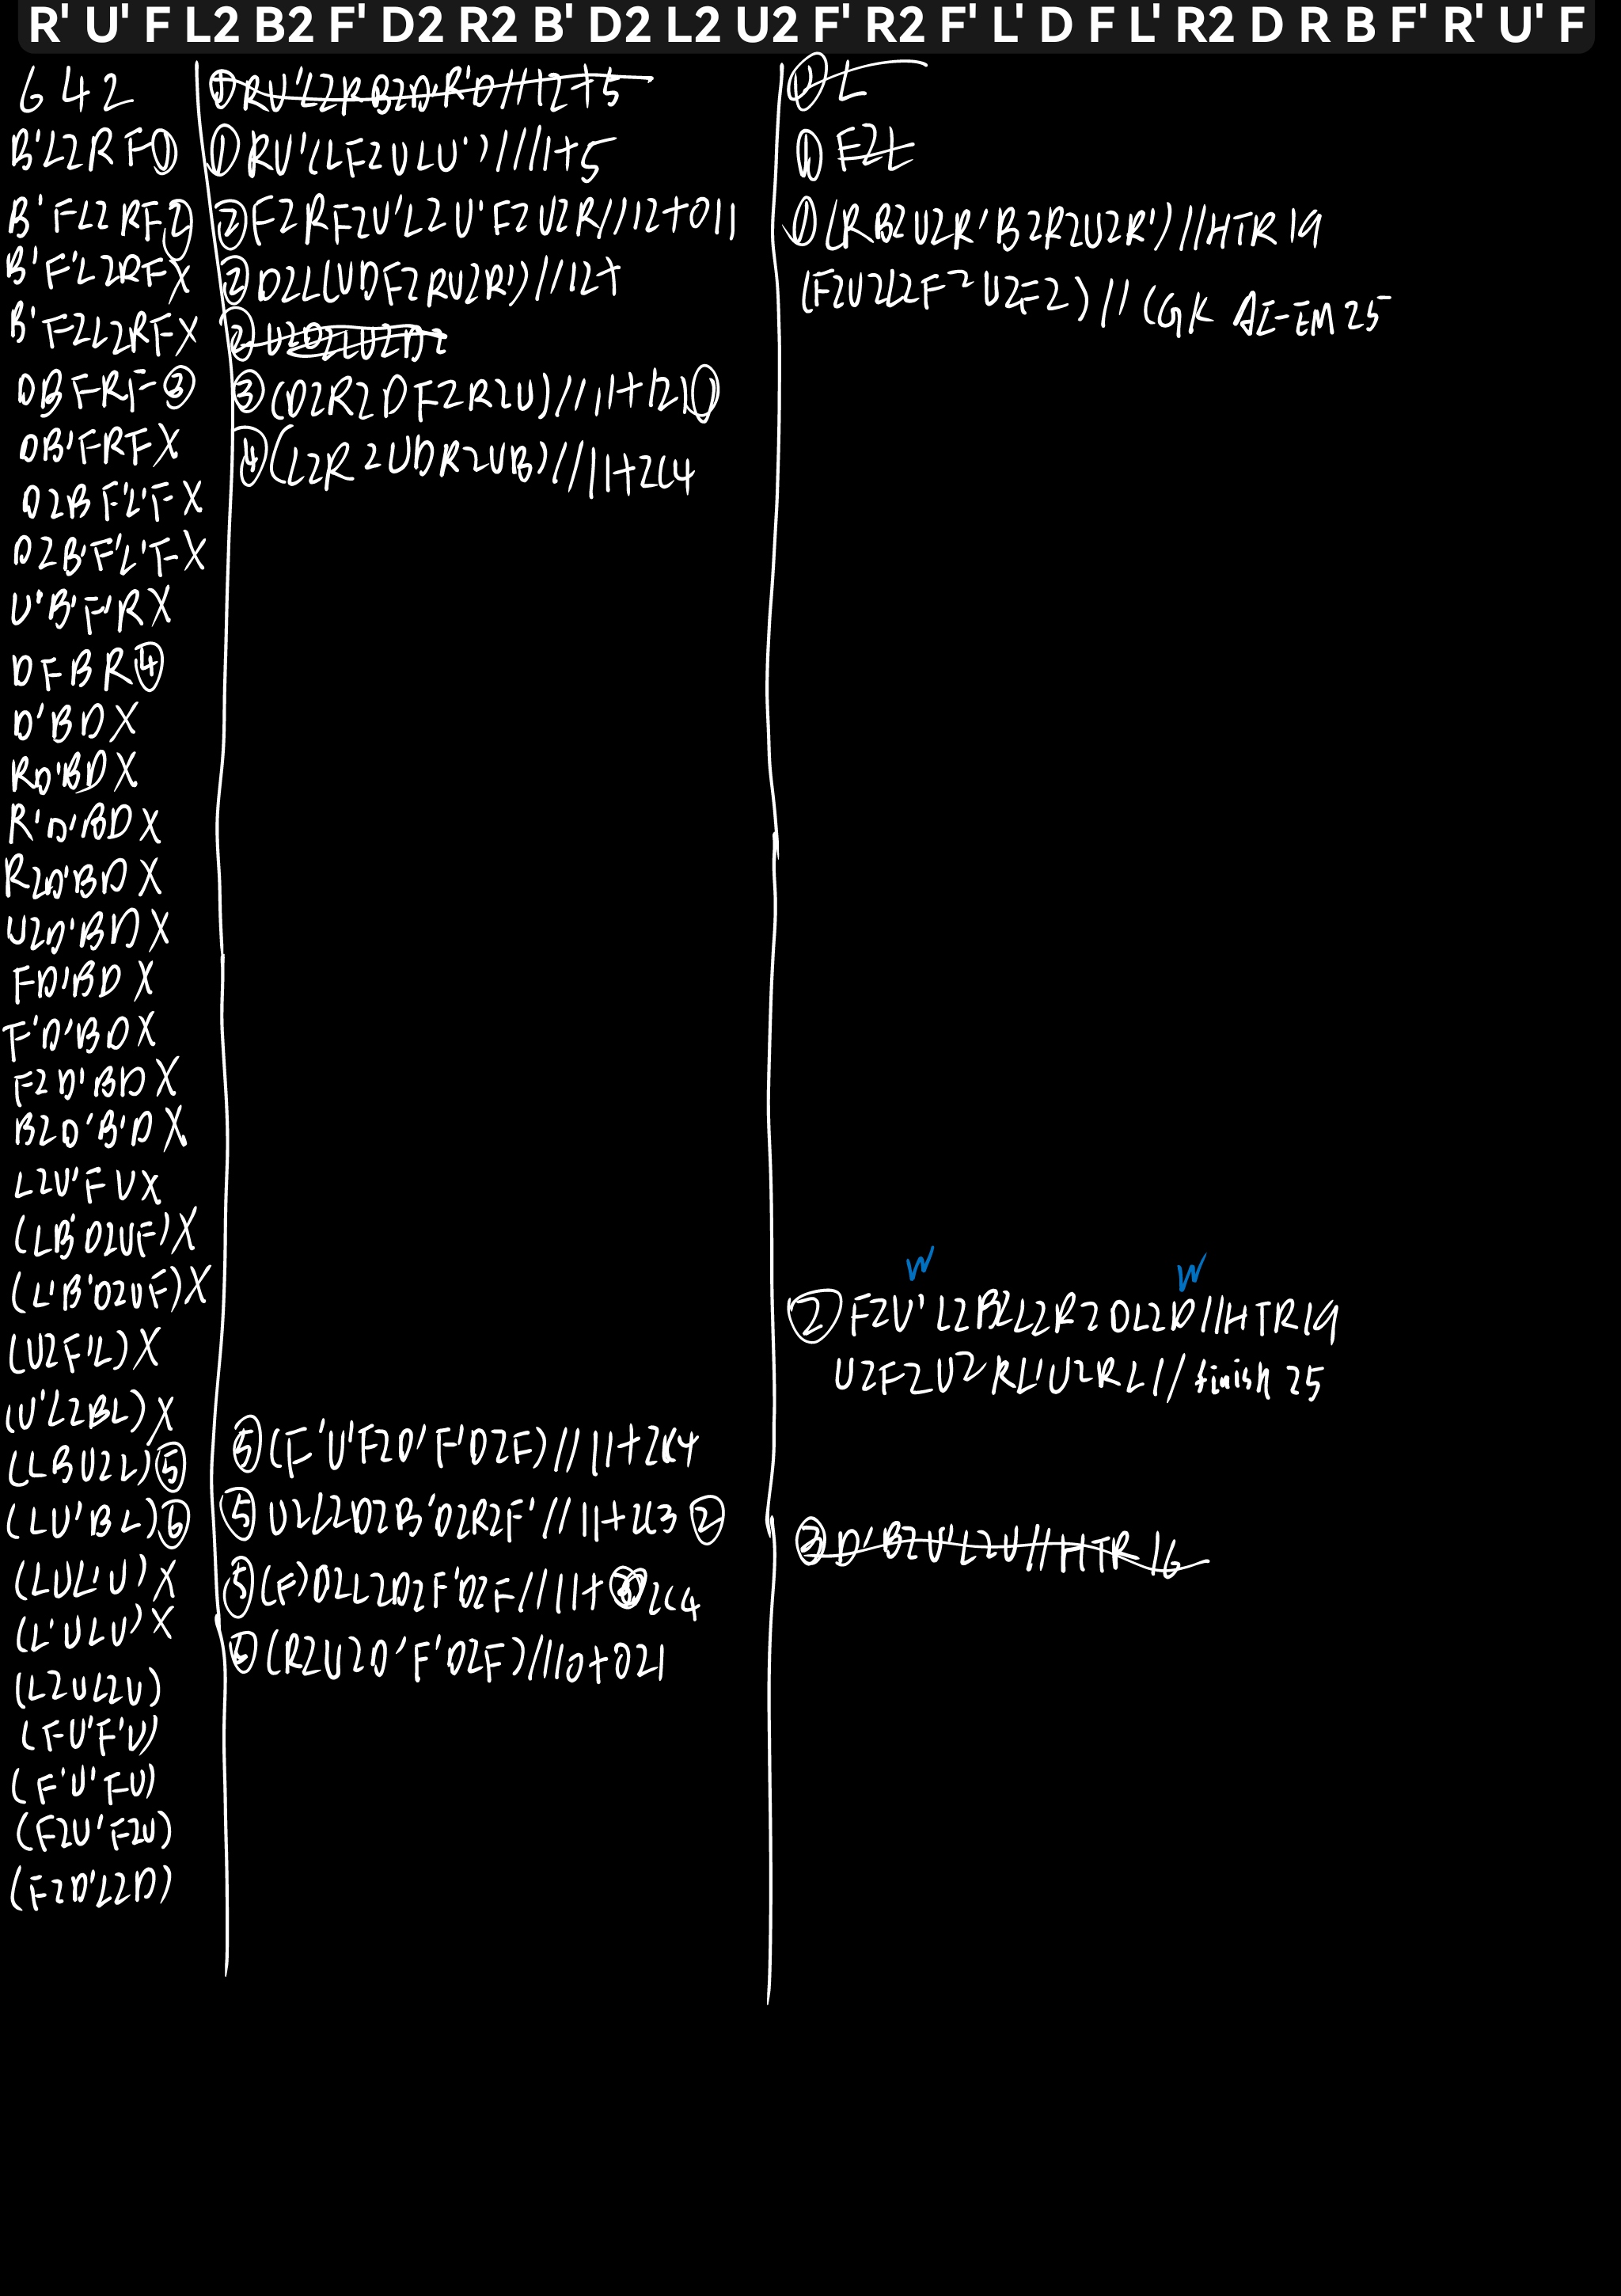 R' U' F L2 B2 F' D2 R2 B' D2 L2 U2 F' R2 F' L' D F L' R2 D R B F' R' U' F
6 4 2
B'L2RF①
B'FL2RF②
B'F'L2RFX
B'F2L2RFX
DBFRF③
DB'FRFX
D2BF'L'FX
D2B'F'L'FX
U'B'F'RX
DFBR④
D'BDX
RD'BDX
R'D'BDX
R2D'BDX
U2D'BDX
FD'BDX
F'D'BDX
F2D'BDX
B2D'B'DX
L2U'FUX
(LB'D2UF)X
(L'B'D2UF)X
(U2F'L)X
(U'L2BL)X
(LBU2L)⑤
(LU'BL)⑥
(LUL'U)X
(L'ULU)X
(L2UL2U)
(FU'F'U)
(F'U'FU)
(F2U'F2U)
(F2D'L2D)
①RU'L2RB2D'R'D//12+5
①RU'(LF2ULU')//11+5
②F2RF2U'L2U'F2U2R//12+011
②D2L(UDF2RU2R')//12+
③(D2R2DF2R2U)//11+121①
④(L2R2UDR2UB)//11+2C4
⑤(F'U'F2D'F'D2F)//11+2C4
⑤U2L2D2B'D2R2F'//11+4C3②
⑤(F)D2L2D2F'D2F//11+2C4
⑥(R2U2D'F'D2F)//10+021
① L
① F2L
①(RB2U2R'B2R2U2R')//HTR 19
(F2U2L2F2U2F2)//CGK AE-EM 25
W W
②F2U'L2B2L2R2DL2D//HTR19
U2F2U2RL'U2RL//finish 25
③D'B2U'L2U//HTR 16